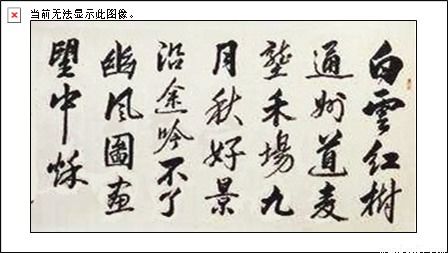 当前无法显示此图像。
白雲紅樹
通州道麦
壟禾場九
月秋好景
沿途吟不了
幽风圖畫
望中